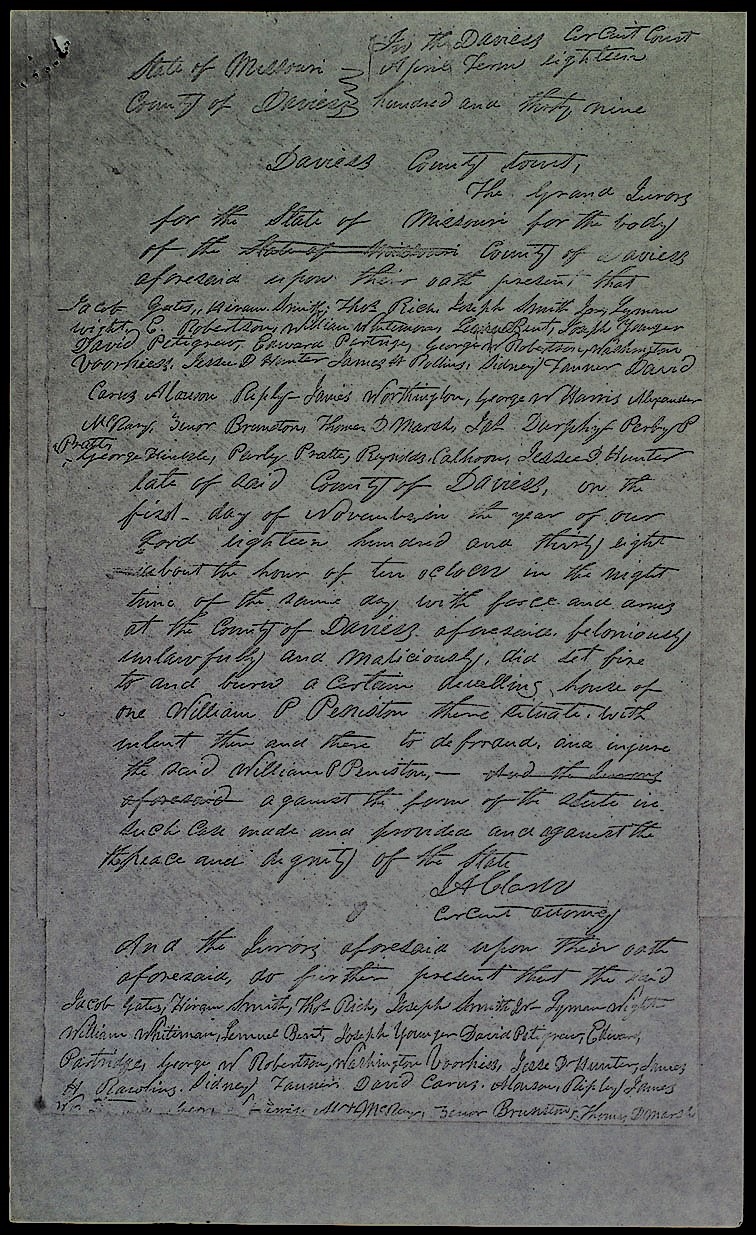 In the Daviess Circuit Court
State of Missouri April Term eighteen
County of Daviess hundred and thirty nine
Daviess County towit,
The Grand Jurors
for the State of Missouri for the body
of the State of Missouri County of Daviess
aforesaid upon their oath present that
Jacob Gates, Hiram Smith, Thos Rich, Joseph Smith Jr, Lyman
wight, E. Robertson, William Whitiman, Lemuel Bent, Joseph Younger
David Petigrew, Edward Partridge, George W Robertson, Washington
Voorheess, Jessee D Hunter James H Rollins, Sidney Tanner David
Carus Alonson Ripley James Worthington, George W Harris Alexander
McRay, Zenor Brunston, Thomas D Marsh, Durphy Perby P
Pratte,
George Hinkle, Parly Pratte, Reynolds Calhoon, Jessee D Hunter
late of said County of Daviess, on the
first day of November in the year of our
Lord eighteen hundred and thirty eight
about the hour of ten oclock in the night
time of the same day with force and arms
at the County of Daviess aforesaid feloniously
unlawfully and Maliciously, did set fire
to and burn a certain dwelling house of
one William P Peniston there situate, with
intent then and there to defraud, and injure
the said William P Peniston,— And the Jurors
aforesaid against the form of the statute in
such case made and provided and against the
the peace and dignity of the State
J A Clark
Circuit attorney
And the Jurors aforesaid upon their oath
aforesaid, do further present that the said
Jacob Gates, Hiram Smith, Thos Rich, Joseph Smith Jr Lyman Wight
William Whitiman, Lemuel Bent, Joseph Younger David Petigrew, Edward
Partridge, George W Robertson, Washington Voorhiess, Jesse D Hunter, James
H Rawlins. Sidney Tanner, David Carus. Alonson, Ripley James
McRay, Zenor Brunston, Thomas D Marsh